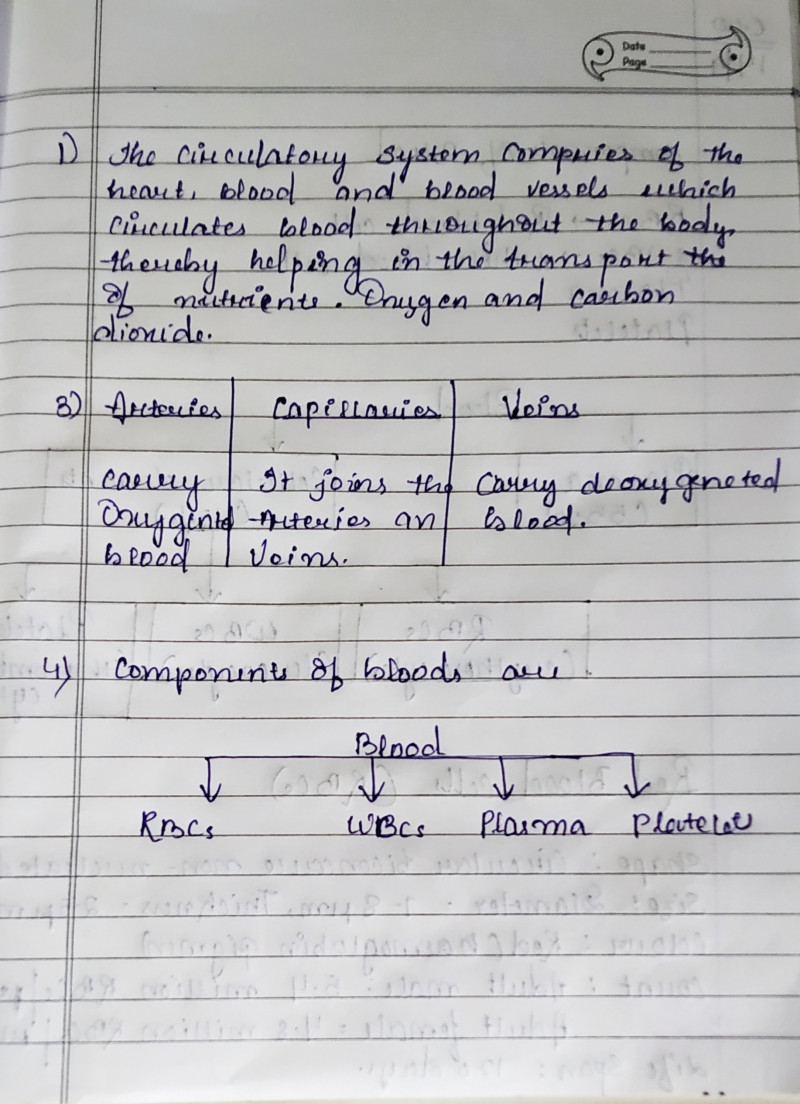 Date
Page
1) The circulatory system compries of the
heart, blood and blood vessels which
circulates blood throughout the body,
thereby helping in the transport the
of nutrients. Oxygen and carbon
dioxide.
3) Arteries Capillaries Veins
carry It joins the Carry deoxygeneted
Oxygented Arteries an blood.
blood Veins.
4) Components of bloods are
Blood
RBCs WBCs Plasma Platelet